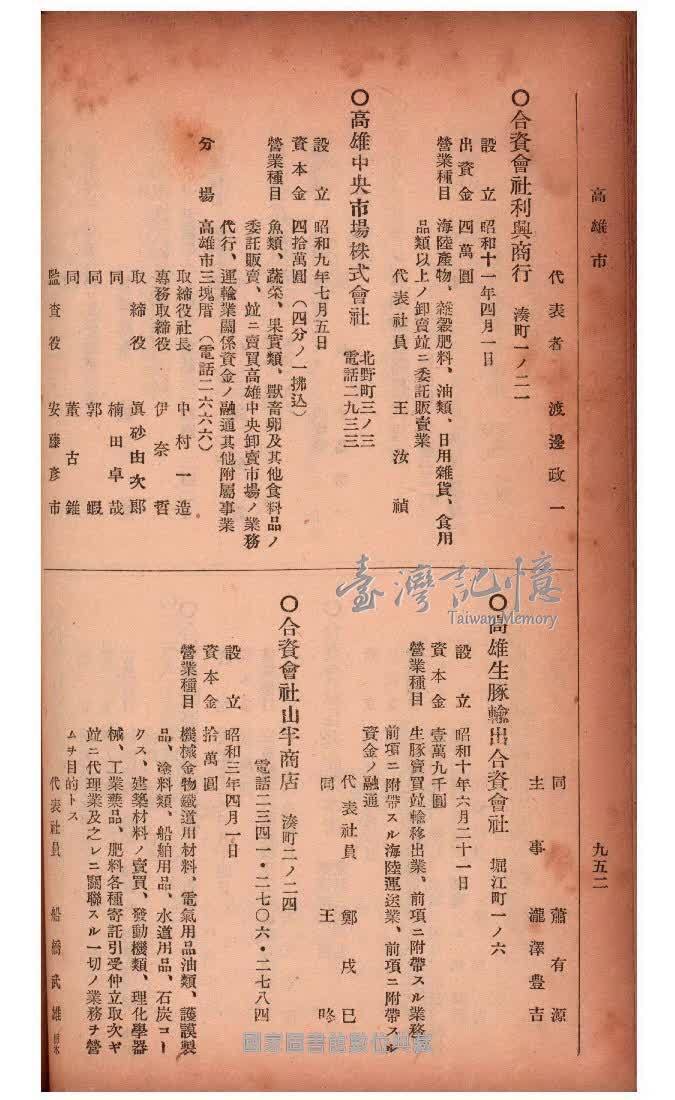 高雄市
九五二
代表者 渡邊政一
〇合資會社利興商行 湊町一ノ二一
設立 昭和十一年四月一日
出資金 四萬圓
營業種目 海陸產物、雜穀肥料、油類、日用雜貨、食用
品類以上ノ卸賣竝ニ委託販賣業
代表社員 王汝禎
〇高雄中央市場株式會社 北野町三ノ三
電話二九三三
設立 昭和九年七月五日
資本金 四拾萬圓（四分ノ一拂込）
營業種目 魚類、蔬菜、果實類、獸畜卵及其他食料品ノ
委託販賣、竝ニ賣買高雄中央卸賣市場ノ業務
代行、運輸業關係資金ノ融通其他附屬事業
分場 高雄市三塊厝（電話二六六六）
取締役社長 中村一造
專務取締役 伊奈哲
取締役 眞砂由次郎
同 楠田卓哉
同 郭蝦
同 董古錐
監查役 安藤彥市
同 蕭有源
主事 瀧澤豊吉
〇高雄生豚輸出合資會社 堀江町一ノ六
設立 昭和十年六月二十一日
資本金 壹萬九千圓
營業種目 生豚賣買竝輸移出業、前項ニ附帶スル業務
前項ニ附帶スル海陸運送業、前項ニ附帶スル
資金ノ融通
代表社員 鄭戌已
同 王咚
〇合資會社山半商店 湊町二ノ二四
電話二三四一・二七〇六・二七八四
設立 昭和三年四月一日
資本金 拾萬圓
營業種目 機械金物鐵道用材料、電氣用品油類、護謨製
品、塗料類、船舶用品、水道用品、石炭コー
クス、建築材料ノ賣買、發動機類、理化學器
械、工業藥品、肥料各種寄託引受仲立取次ギ
竝ニ代理業及之レニ關聯スル一切ノ業務チ營
ムチ目的トス
代表社員 船橋武雄
臺灣記憶
Taiwan Memory
國家圖書館數位典藏